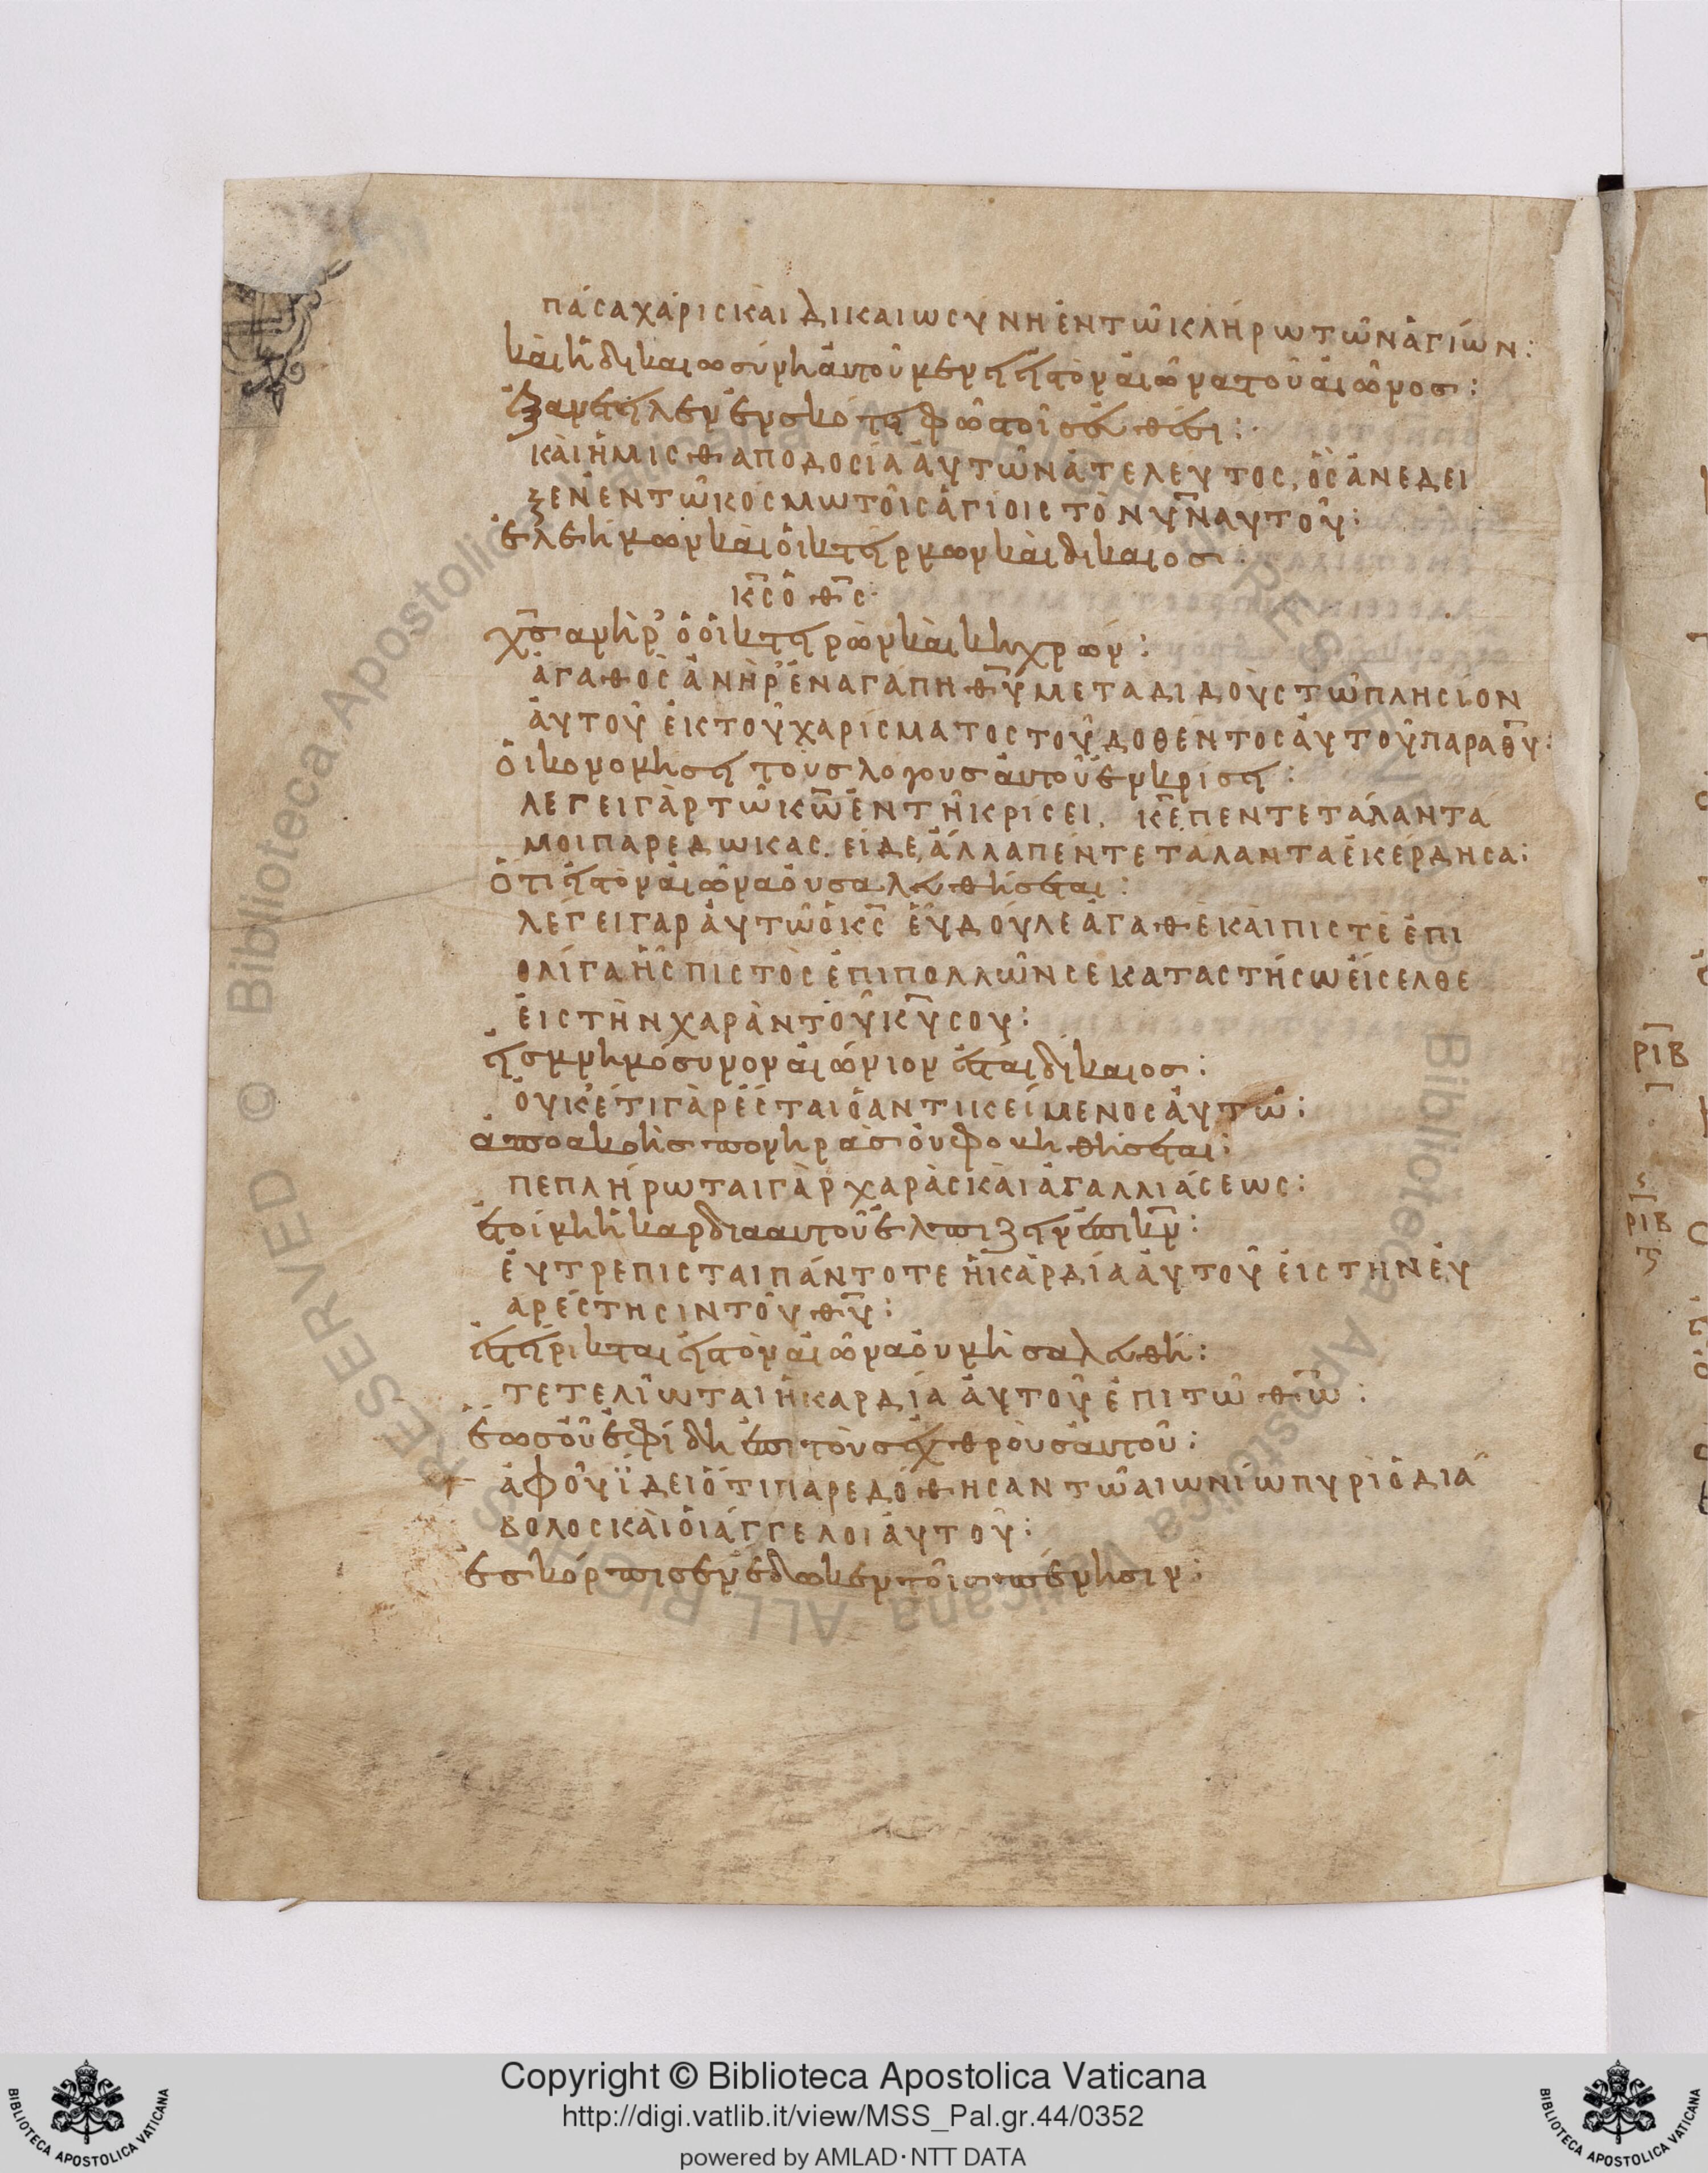 πάσα χάρις καὶ δικαιωσύνη ἐν τῶ κλήρω τῶν ἁγίων:
καὶ ἡ δικαιωσύνη ἀυτοῦ μενει εἰ τὸν ἀιῶνα τοῦ ἀιῶνοσ:
ἐξανετειλεν ἐν σκότει φῶ τοῖ ευθέσι:
καὶ ἡ μισθαποδοσία ἀυτῶν ἀτελευτος, ὃς ἀνεδει
ξεν ἐν τῶ κόσμω τοῖς ἁγίοις τὸν υν̅ αυτοῦ:
ἐλεήμων καὶ ὀικτειρμων καὶ δικαιοσ
κς̅ ὁ θς̅:
χσ̅ ανὴρ ὁ ὀικτειρὼν καὶ κηχρων:
ἀγαθὸς ἀνὴρ ἐν αγάπη θυ̅ μεταδιδοὺς τῶ πλησίον
ἀυτοῦ ἐκ τοῦ χαρίσματος τοῦ δοθέντος ἀυτοῦ παρα θυ̅:
ὀικονομησει τοὺσ λογουσ ἀυτοῦ ἐν κρίσει:
λεγει γὰρ τῶ κω̅ ἐν τῆ κρίσει. κε̅ πεντε τάλαντα
μοι παρεδωκας. εἰδε, ἀλλα πέντε τάλαντα ἐκέρδησα:
ὅτι εἰ τὸν ἀιῶνα ὀυ σαλευθήσεται:
λέγει γαρ ἀυτῶ ὁ κς̅ ἐῦ δοῦλε ἀγαθὲ καὶ πιστὲ ἐπι
ολίγα ἦς πιστὸς ἐπι πολλῶν σε καταστήσω ἐίσελθε
ἐις τὴν χαρὰν τοῦ κυ̅ σου:
εἰσ μνημόσυνον ἀιώνιον ἔσται δίκαιοσ:
ὀυκέτι γὰρ ἔσται ὁ αντικείμενος ἀυτῶ:
ἀπο ακοὴσ πονηρὰσ ὀυ φοβηθήσεται:
πεπλήρωται γὰρ χαρὰς καὶ ἀγαλλιάσεως:
ἑτοίμη ἡ καρδια αυτοῦ ἐλπιζειν ἐπι κν̅:
ἐυτρεπισται πάντοτε ἡ καρδία ἀυτοῦ ἐις τὴν ἐυ
αρέστησιν τοῦ θυ̅:
ἐστήρικται εἰ τὸν ἀιῶνα ὀυ μὴ σαλευθῆ:
τετελίωται ἡ καρδία ἀυτοῦ ἐπι τῶ θω̅:
ἕωσ ὁῦ ἐφίδη ἐπι τὸυσ ἐχθροὺσ ἀυτοῦ:
ἀφ οὗ ϊδει ὅτι παρεδόθησαν τῶ αιωνίω πυρὶ ὁ διά
βολος καὶ ὁι ἄγγελοι ἀυτοῦ:
ἐσκόρπισεν ἐδωκεν τοῖσ πένησιν:
ριβ
ριβ
Copyright © Biblioteca Apostolica Vaticana
http://digi.vatlib.it/view/MSS_Pal.gr.44/0352
powered by AMLAD·NTT DATA
BIBLIOTECA APOSTOLICA VATICANA
BIBLIOTECA APOSTOLICA VATICANA